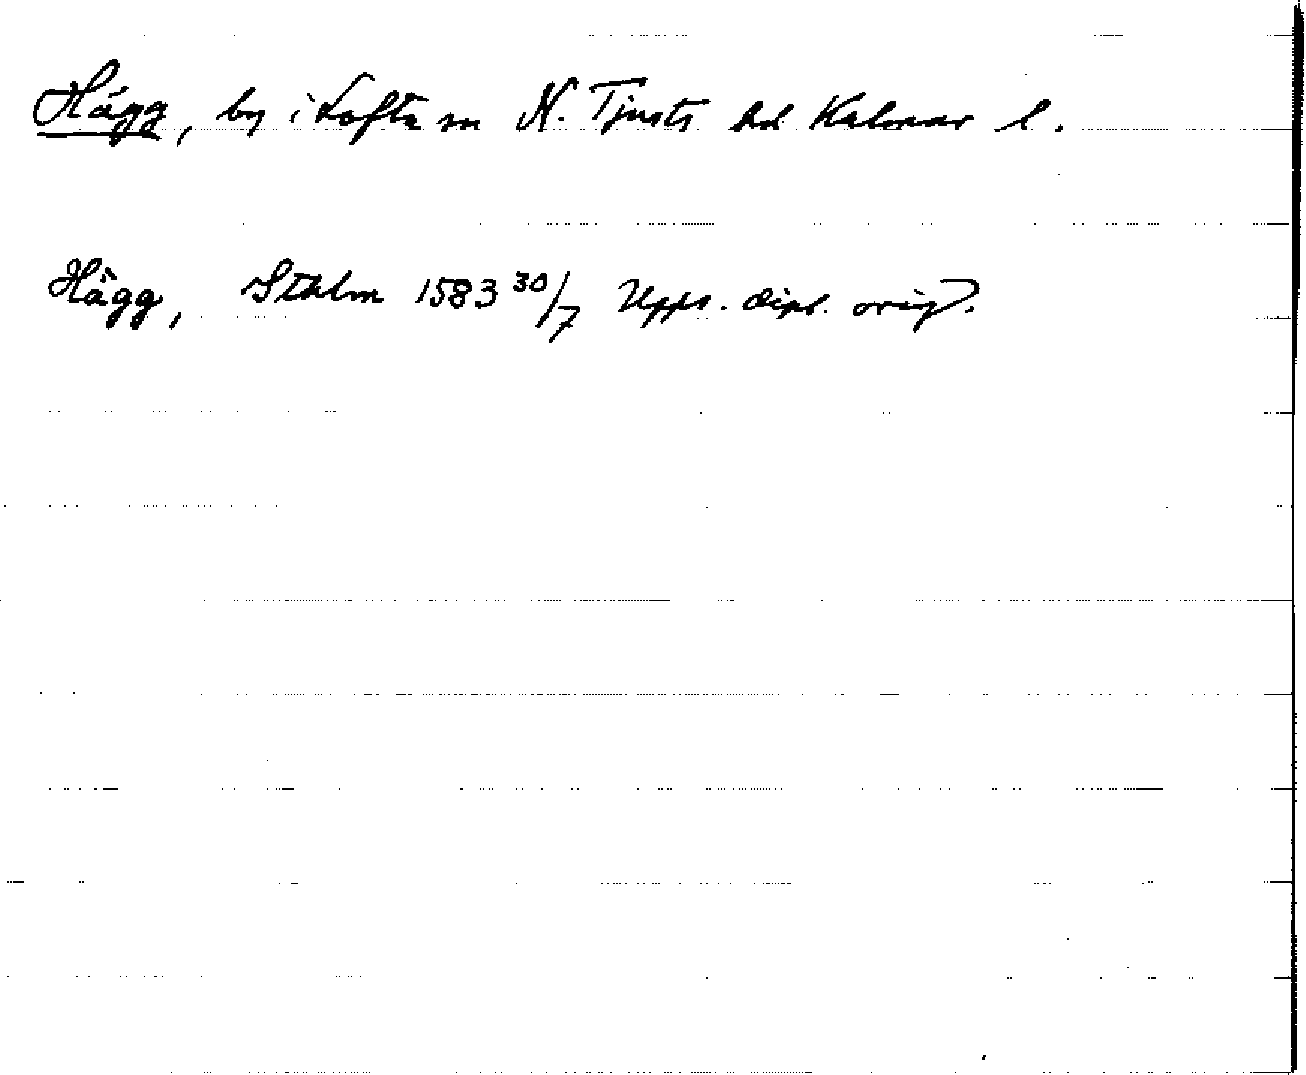 Hägg, by i Lofta sn N. Tjusts hd Kalmar l.
Hägg, Sthlm 1583 30/7 Upps. dipl. orig.